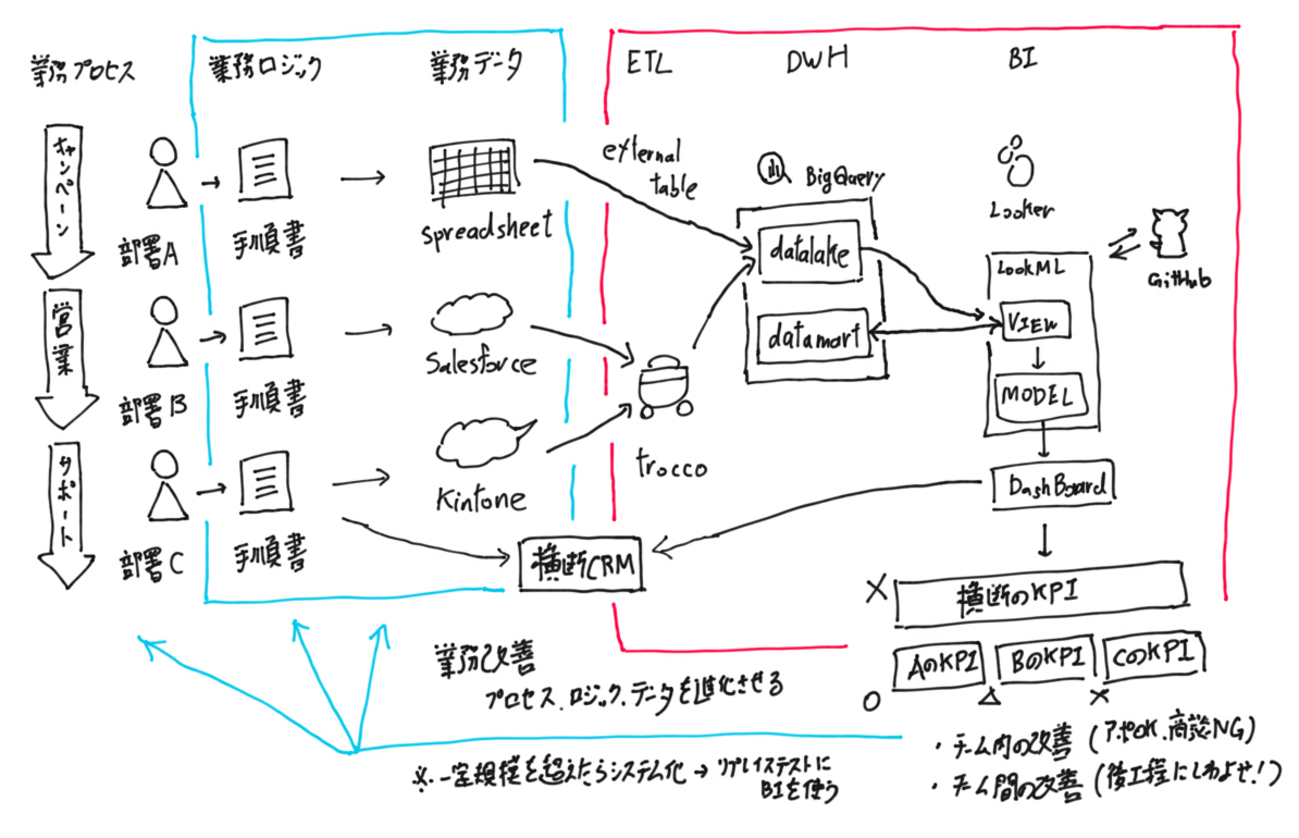 業務プロセス
業務ロジック
業務データ
ETL
DWH
BI
キャンペーン
部署A
手順書
spreadsheet
external
table
BigQuery
Looker
GitHub
datalake
datamart
LookML
VIEW
MODEL
営業
部署B
手順書
Salesforce
trocco
サポート
部署C
手順書
Kintone
横断CRM
DashBoard
×
横断のKPI
AのKPI
BのKPI
CのKPI
○
△
×
業務改善
プロセス、ロジック、データを進化させる
・チーム内の改善(アポOK、商談NG)
・チーム間の改善(後工程にしわよせ!)
※一定規模を超えたらシステム化→リプレイステストに
BIを使う